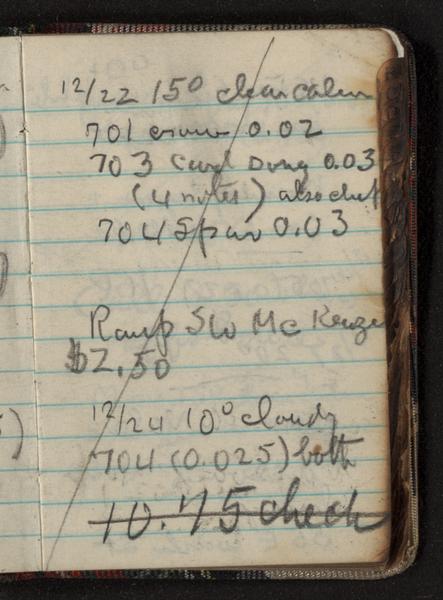 12/22 15° clear calm
701 crow 0.02
703 Card song 0.03
(4 notes) also
704 Spar 0.03
Ramp SW McKenzie
$2.50
12/24 10° cloudy
704 (0.025) both
10.45 check